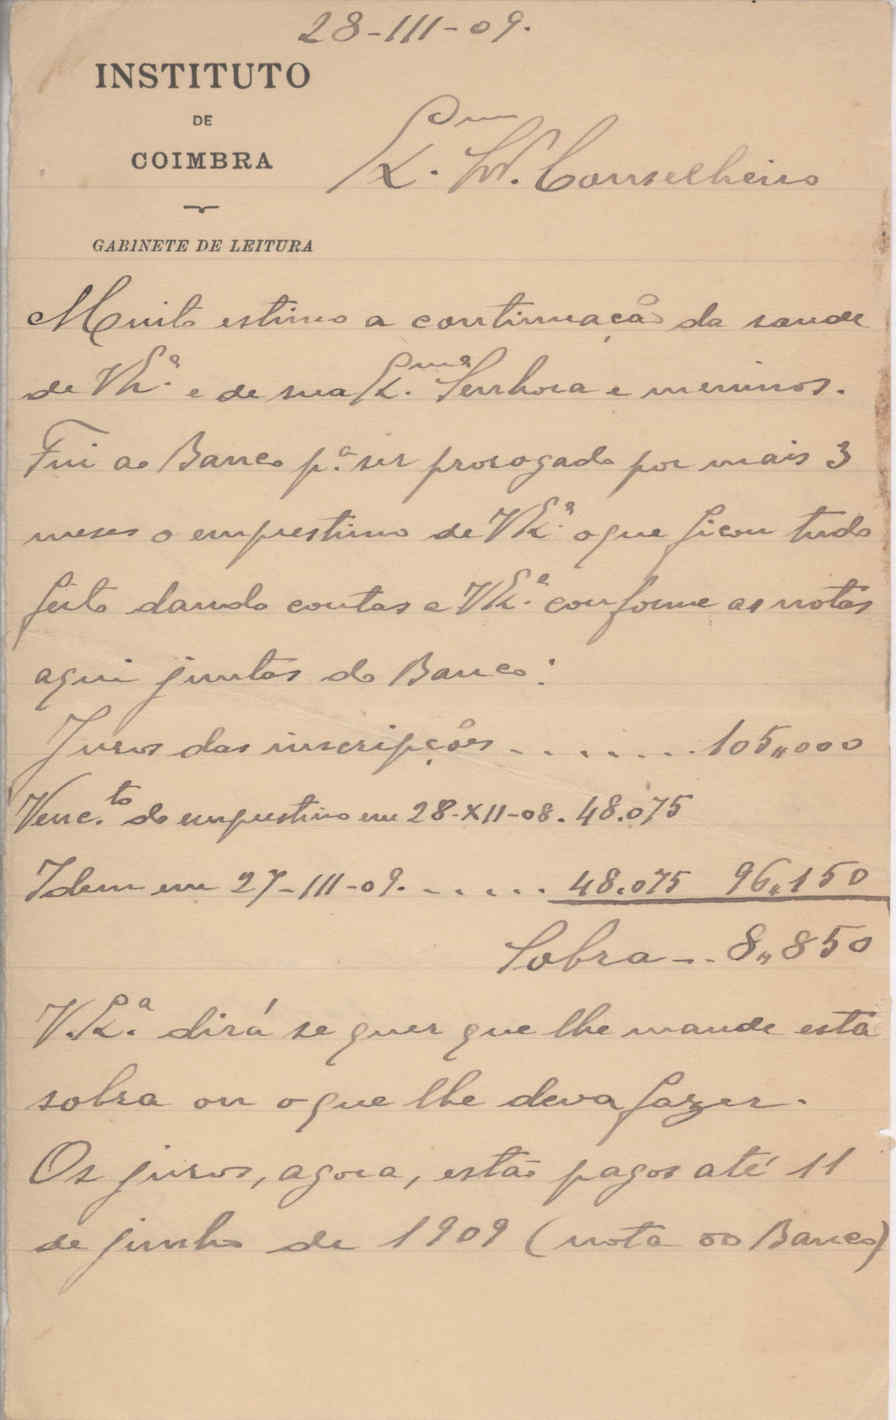 28-III-09.
INSTITUTO
DE
COIMBRA
GABINETE DE LEITURA
Exmo. Snr. Conselheiro
Muito estimo a continuação da saude
de V Exª. e de sua Exmª. Senhora e meninos.
Fui ao Banco pª. ser prorogado por mais 3
meses o emprestimo de V Exª. o que ficou tudo
feito dando contas a V Exª. conforme as notas
aqui juntas do Banco:
Juros das inscripções - . . . . . . 105,,000
Venc.to do emprestimo em 28-XII-08. 48.075
Idem em 27-III-09. - . . . . 48.075 96,,150
Sobra - . . 8,,850
V. Exª. dirá se quer que lhe mande esta
sobra ou o que lhe deva fazer.
Os juros, agora, estão pagos até 11
de junho de 1909 (nota do Banco)